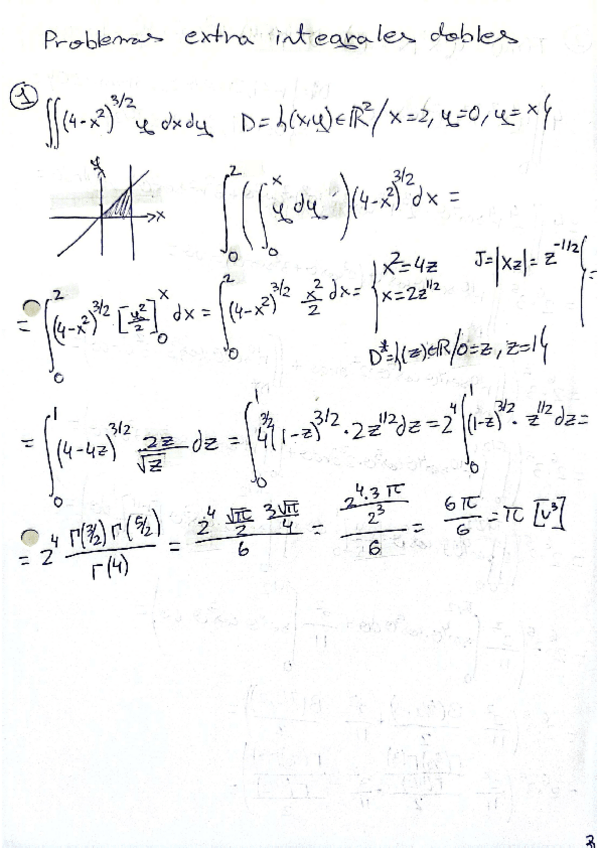 Problemas extra integrales dobles
① ∬(4-x²)^{3/2} y dx dy   D = {(x,y)∈ℝ² / x=2, y=0, y=x}
y
x
∫₀² (∫₀ˣ y dy) (4-x²)^{3/2} dx =
= ∫₀² (4-x²)^{3/2} [y²/2]₀ˣ dx = ∫₀² (4-x²)^{3/2} x²/2 dx = { x²=4z   J=|Xz|= z^{-1/2} } =
x=2z^{1/2}
D*={(z)∈ℝ/0=z, z=1}
= ∫₀¹ (4-4z)^{3/2} 2z/√z dz = ∫₀¹ 4^{3/2} (1-z)^{3/2} · 2z^{1/2} dz = 2⁴ ∫₀¹ (1-z)^{3/2} · z^{1/2} dz =
= 2⁴ Γ(3/2) Γ(5/2) / Γ(4) = (2⁴ √π/2 3√π/4) / 6 = (2⁴·3π / 2³) / 6 = 6π/6 = π [u³]